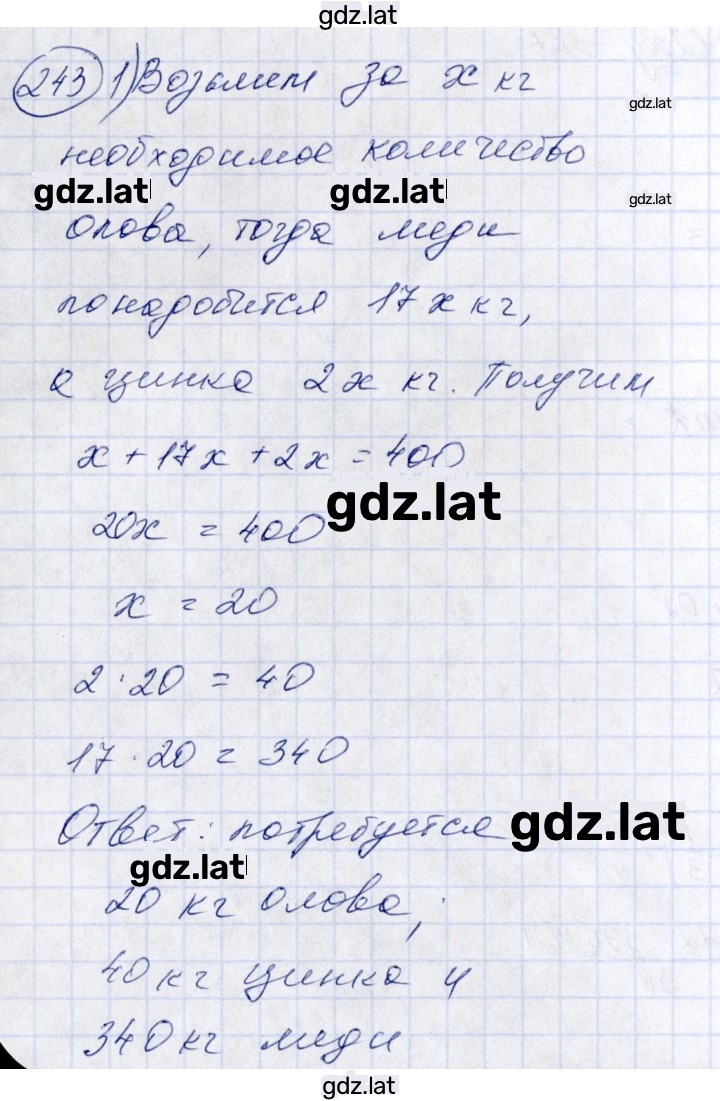 gdz.lat
243 1) Возьмем за x кг
gdz.lat
необходимое количество
gdz.lat gdz.lat gdz.lat
олова, тогда меди
понадобится 17x кг,
а цинка 2x кг. Получим
x + 17x + 2x = 400
gdz.lat
20x = 400
x = 20
2 · 20 = 40
17 · 20 = 340
Ответ: потребуется gdz.lat
gdz.lat
20 кг олова,
40 кг цинка и
340 кг меди
gdz.lat